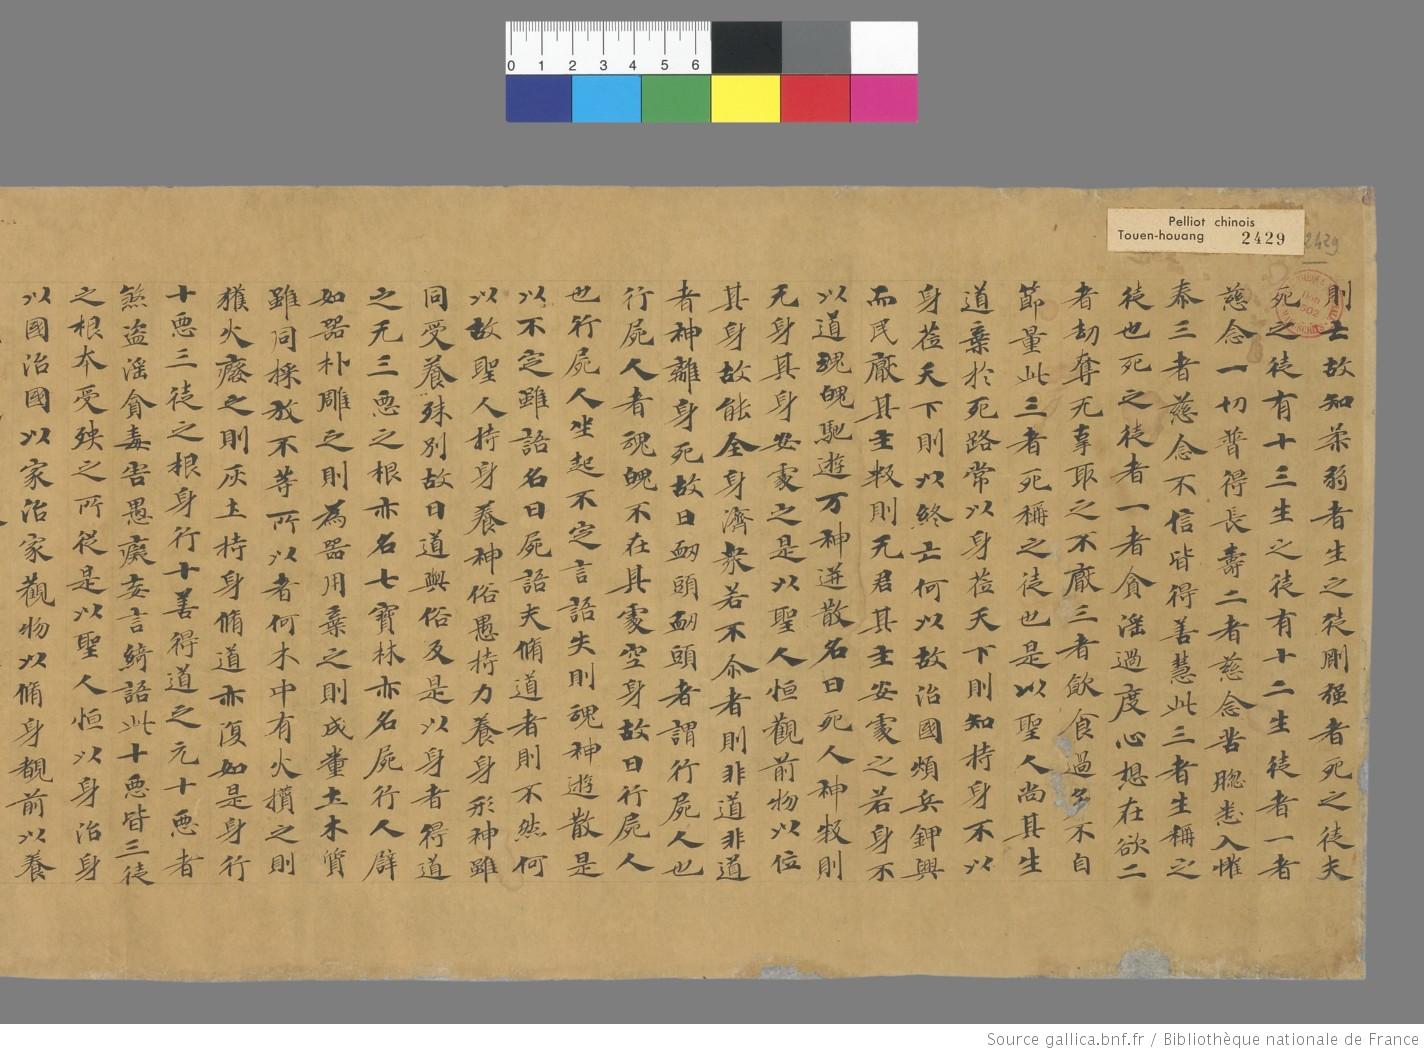 0 1 2 3 4 5 6
Pelliot chinois
Touen-houang 2429
2429
則亡故知柔弱者生之徒剛强者死之徒夫
死之徒有十三生之徒有十二生徒者一者
慈念一切普得長壽二者慈念苦聡恚入惟
泰三者慈念不信皆得善慧此三者生稱之
徒也死之徒者一者貪淫過度心想在欲二
者劫奪无辜取之不厭三者飲食過多不自
節量此三者死稱之徒也是以聖人尚其生
道棄於死路常以身莅天下則知持身不以
身莅天下則以終亡何以故治國煩兵鉀興
而民厭其主煞則无君其主安處之若身不
以道魂魄馳遊万神迸散名曰死人神煞則
无身其身安處之是以聖人恒觀前物以位
其身故能全身濟衆若不尒者則非道非道
者神離身死故曰衂頭衂頭者謂行屍人也
行屍人者魂魄不在其處空身故曰行屍人
也行屍人坐起不定言語失則魂神遊散是
以不定雖語名曰屍語夫脩道者則不然何
以故聖人持身養神俗愚持力養身形神雖
同受養殊別故曰道與俗反是以身者得道
之无三惡之根亦名七寶林亦名屍行人辟
如器朴雕之則為器用棄之則成糞土木質
雖同採放不等所以者何木中有火攢之則
獲火癈之則灰土持身脩道亦復如是身行
十惡三徒之根身行十善得道之元十惡者
煞盜淫貪毒害愚癡妄言綺語此十惡皆三徒
之根本受殃之所從是以聖人恒以身治身
以國治國以家治家觀物以脩身覩前以養
Source gallica.bnf.fr / Bibliothèque nationale de France